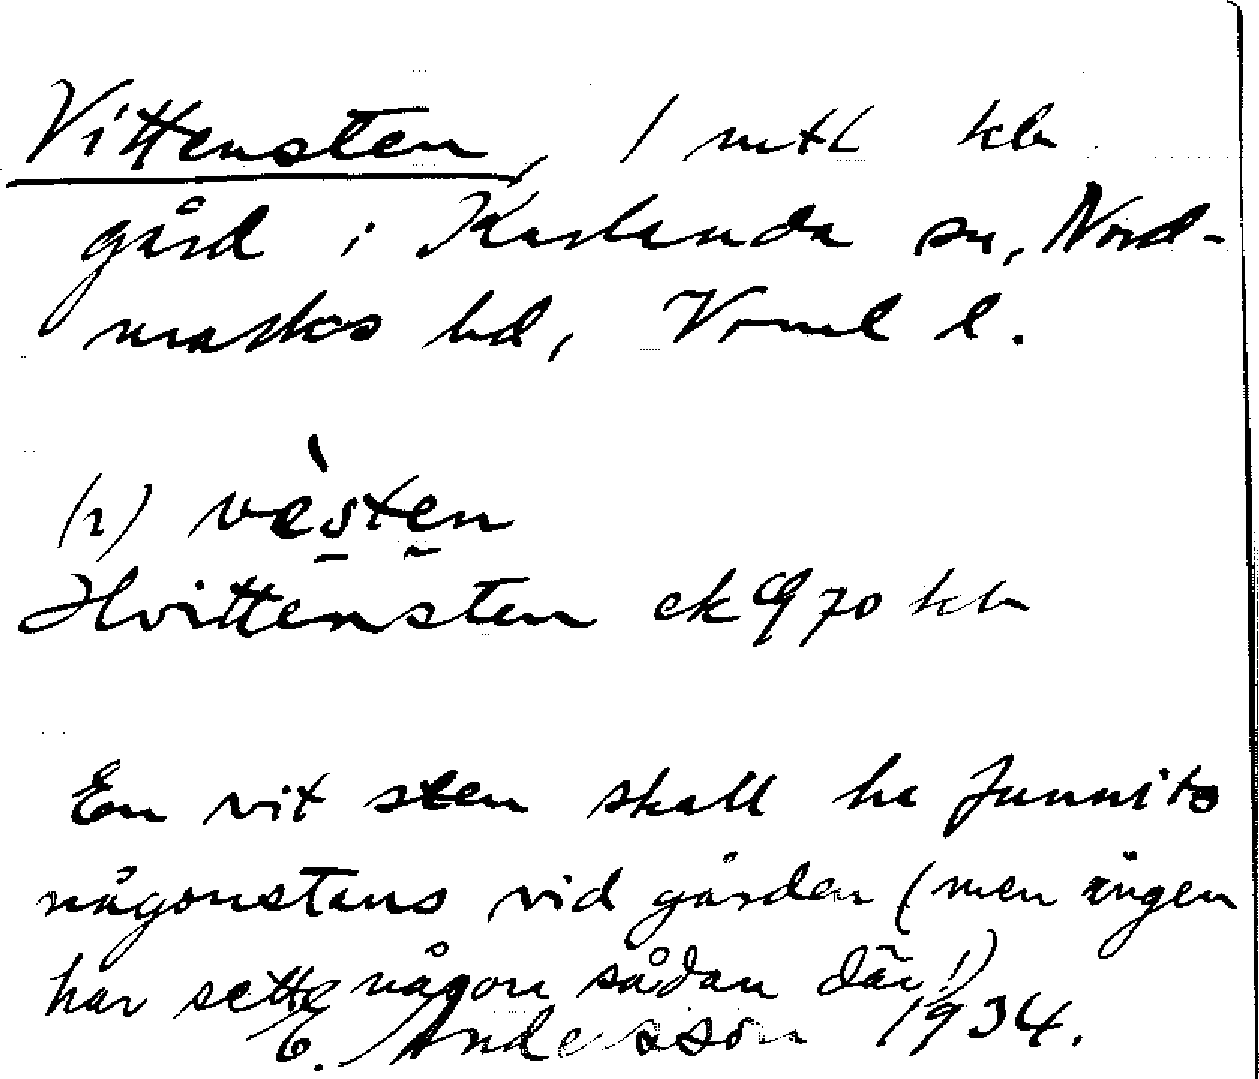 Vittensten, 1 mtl kla
gård i Karlanda sn, Nord-
marks hd, Vrml l.
(i) vèsten
Hvittensten ek 970 kla
En vit sten skall ha funnits
någonstans vid gården (men ingen
har sett någon sådan där!)
E. Andersson 1934.